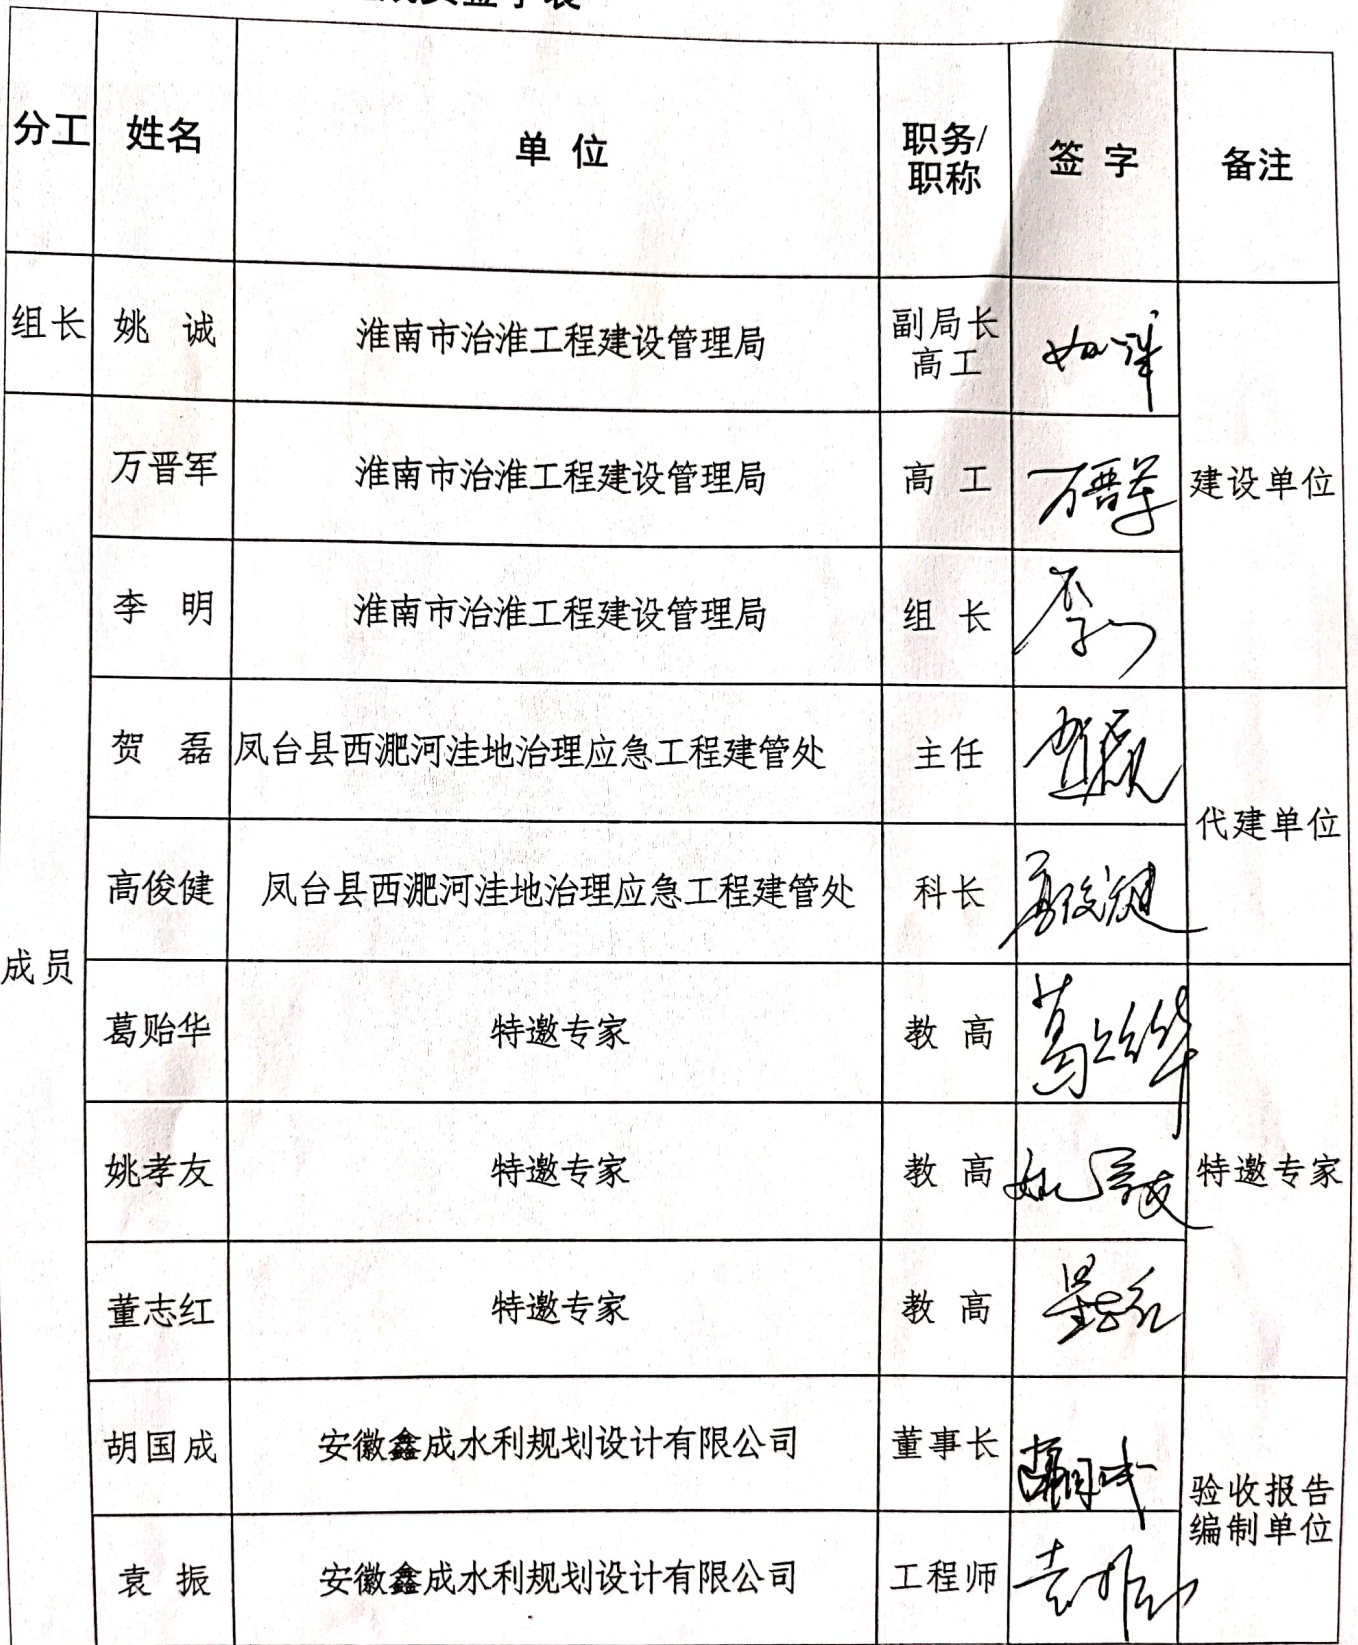 成员签字表
分工 姓名 单 位 职务/职称 签 字 备注
组长 姚 诚 淮南市治淮工程建设管理局 副局长 高工 姚诚 建设单位
成员 万晋军 淮南市治淮工程建设管理局 高 工 万晋军
李 明 淮南市治淮工程建设管理局 组 长
贺 磊 凤台县西淝河洼地治理应急工程建管处 主任 贺磊 代建单位
高俊健 凤台县西淝河洼地治理应急工程建管处 科长 高俊健
葛贻华 特邀专家 教 高 葛贻华 特邀专家
姚孝友 特邀专家 教 高 姚孝友
董志红 特邀专家 教 高 董志红
胡国成 安徽鑫成水利规划设计有限公司 董事长 胡国成 验收报告编制单位
袁 振 安徽鑫成水利规划设计有限公司 工程师 袁振